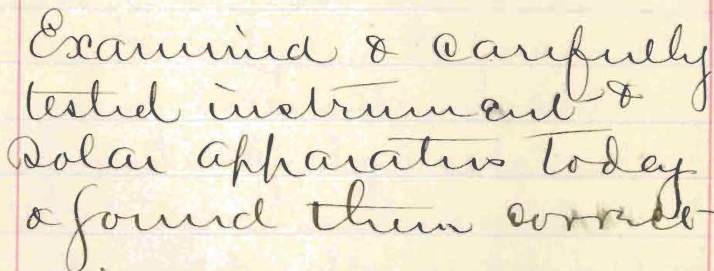 Examined & carefully
tested instrument &
Solar apparatus today
& found them correct